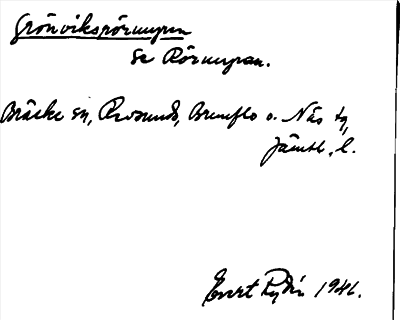 Grönviksrörmyren
Se Rörmyran.
Bräcke sn, Revsunds, Brunflo o. Näs tg,
Jämtl. l.
Evert Rydin 1946.